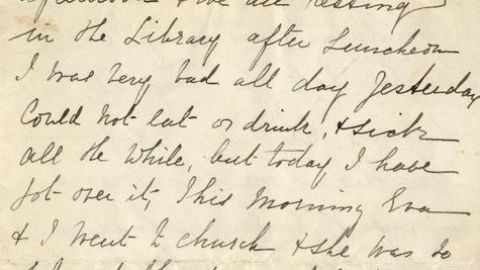 & we are resting
in the Library after Luncheon
I was very bad all day Yesterday
Could not eat or drink, & sick
all the while, but today I have
got over it, This Morning Eva
& I went to church & she was so